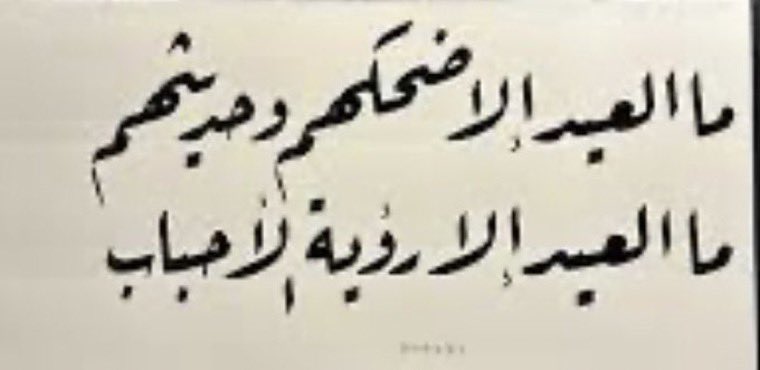 ما العيد إلا ضحكهم وحديثهم
ما العيد إلا رؤية الأحباب